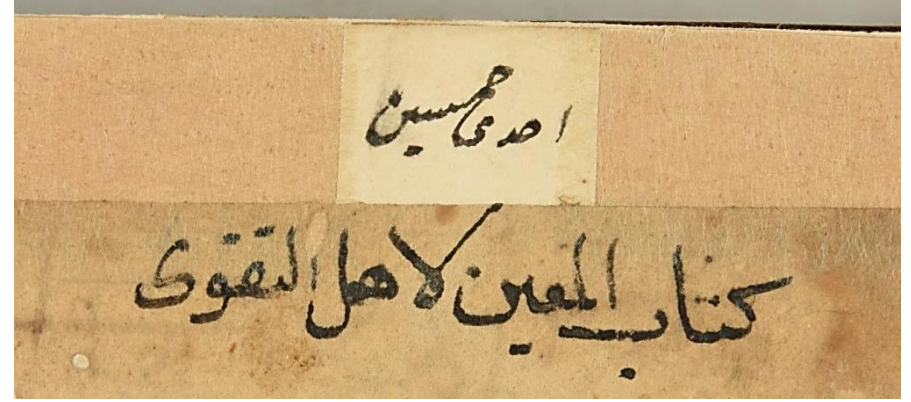 احدى وخمسين
كتاب المعين لاهل التقوى